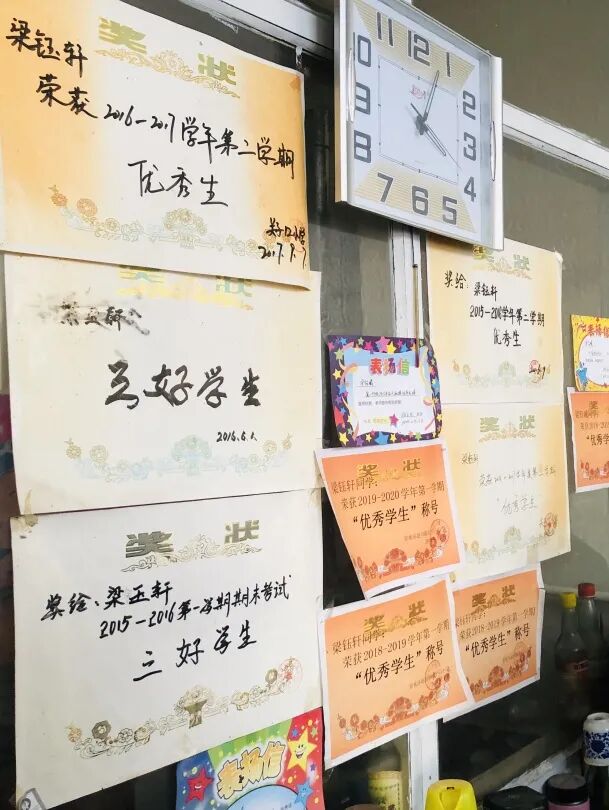 奖 状
梁钰轩
荣获2016-2017学年第二学期
优秀生
2017.9.7
奖 状
三好学生
2016.6.1.
奖 状
奖给:梁玉轩
2015-2016第一学期期末考试
三好学生
表扬信
11 12 1
10 2
9 3
8 4
7 6 5
表扬信
奖 状
奖给:梁钰轩
2015-2016学年第二学期
优秀生
奖 状
"优秀学生"
奖 状
梁钰轩同学:
荣获2019-2020学年第一学期
"优秀学生"称号
奖 状
梁钰轩同学:
荣获2018-2019学年第一学期
"优秀学生"称号
奖 状
荣获2018-2019学年第
"优秀学生"称号
奖
梁钰轩同学:
"优秀